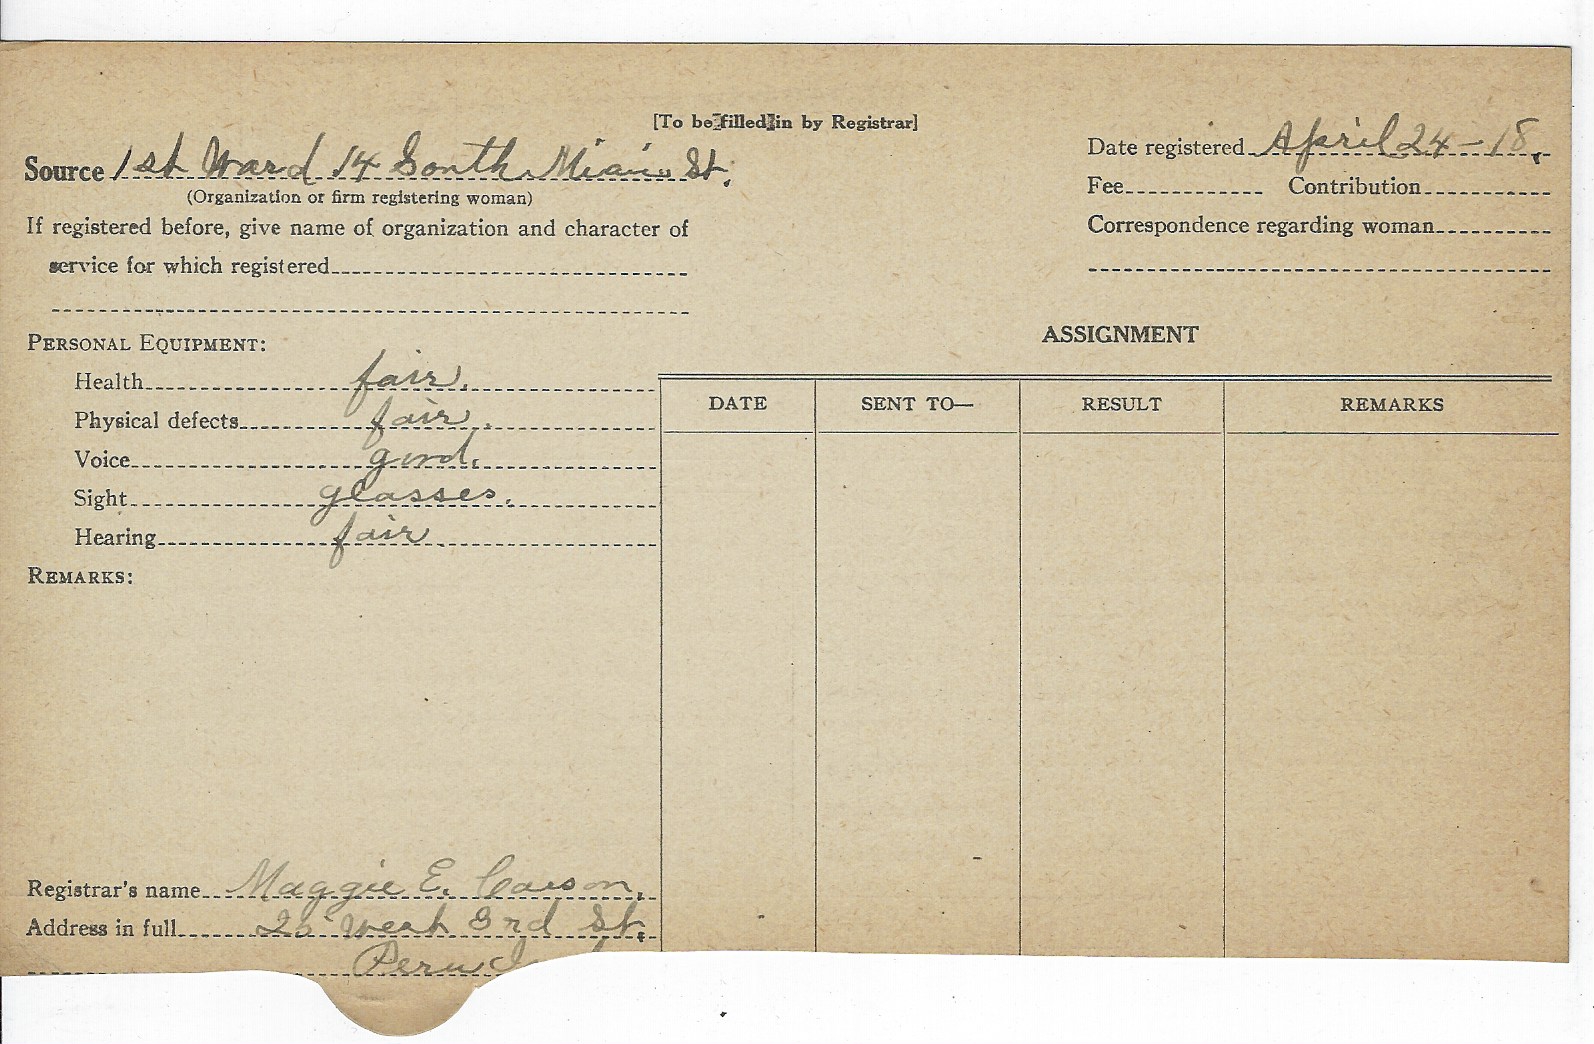 [To be filled in by Registrar]
Source 1st Ward 14 South Miami St.
(Organization or firm registering woman)
If registered before, give name of organization and character of
service for which registered
Date registered April 24-18.
Fee Contribution
Correspondence regarding woman
PERSONAL EQUIPMENT:
Health fair.
Physical defects fair.
Voice good.
Sight glasses.
Hearing fair
REMARKS:
ASSIGNMENT
DATE SENT TO— RESULT REMARKS
Registrar's name Maggie E. Carson.
Address in full West 3rd St.
Peru